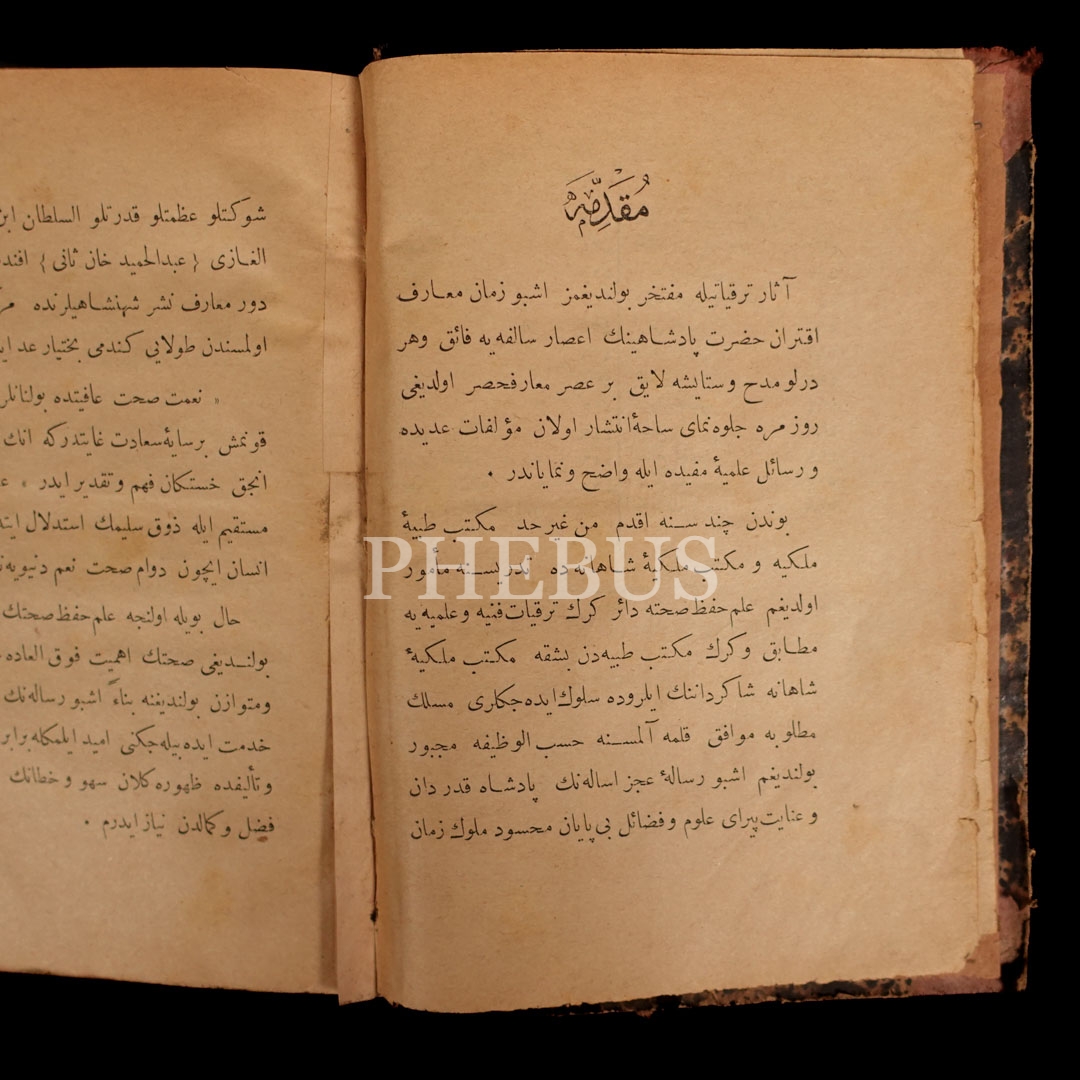 مُقَدِّمَه
آثار ترقیاتیله مفتخر بولندیغمز اشبو زمان معـارف
اقتران حضرت پادشـاهینك اعصار سالفه‌یه فائق وهر
درلو مدح وستایشه لایق بر عصر معارفحصر اولدیغی
روز مره جلوه‌نمای ساحهٔ انتشار اولان مؤلفات عدیده
ورسائل علمیهٔ مفیده ایله واضح ونمایاندر ٠
بوندن چند سـنه اقدم من غیر حد مكتب طبیهٔ
ملكیه و مكتب ملكیهٔ شـاهانه‌ده تدریسـنه مأمور
اولدیغم علم حفظ صحته دائر كرك ترقیات فنیه وعلمیه‌یه
مطـابق وكرك مكتب طبیه‌دن بشقه مكتب ملكیهٔ
شاهانه شاكرداننك ایلروده سلوك ایده‌جكلری مسلك
مطلوبه موافق قلمه آلمسـنه حسب الوظیفه مجبور
بولندیغم اشبو رسالهٔ عجز اساله‌نك پادشـاه قدردان
وعنایت‌پیرای علوم وفضائل بی‌پایان محسود ملوك زمان
شوكتلو عظمتلو قدرتلو السلطان ابن
الغـازی { عبدالحمید خان ثانی }
دور معارف نشر شهنشـاهیلرنده
اولمسندن طولایی كندمی بختیار عد
« نعمت صحت عافیتده بولنانلر
قونمش برسایهٔ سعادت غایتدركه انك
انجق خستكان فهم وتقدیر ایدر »
مستقیم ایله ذوق سلیمك استدلال
انسان ایچون دوام صحت نعم دنیویه
حال بویله اولنجه علم حفظ صحتك
بولنـدیغی صحتك اهمیت فوق العاده
ومتوازن بولندیغنه بناءً اشبو رساله‌نك
خدمت ایده‌بیله‌جكنی امید ایلمكله برابر
وتألیفده ظهوره كلان سهو وخطانك
فضل وكمالدن نیاز ایدرم ٠
PHEBUS